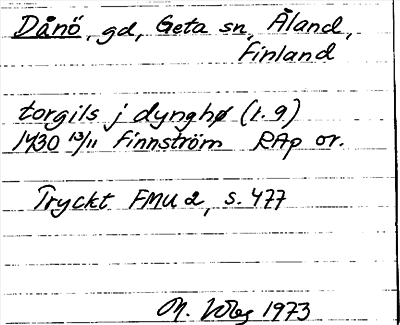 Dånö, gd, Geta sn, Åland,
Finland
torgils j dynghø (l. 9)
1430 13/11 Finnström RAp or.
Tryckt FMU 2, s. 477
M. 1973